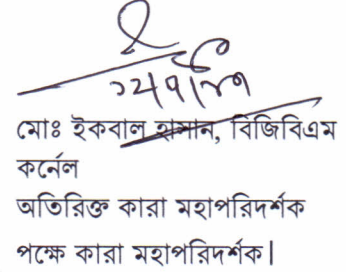 মোঃ ইকবাল হাসান, বিজিবিএম
কর্নেল
অতিরিক্ত কারা মহাপরিদর্শক
পক্ষে কারা মহাপরিদর্শক।